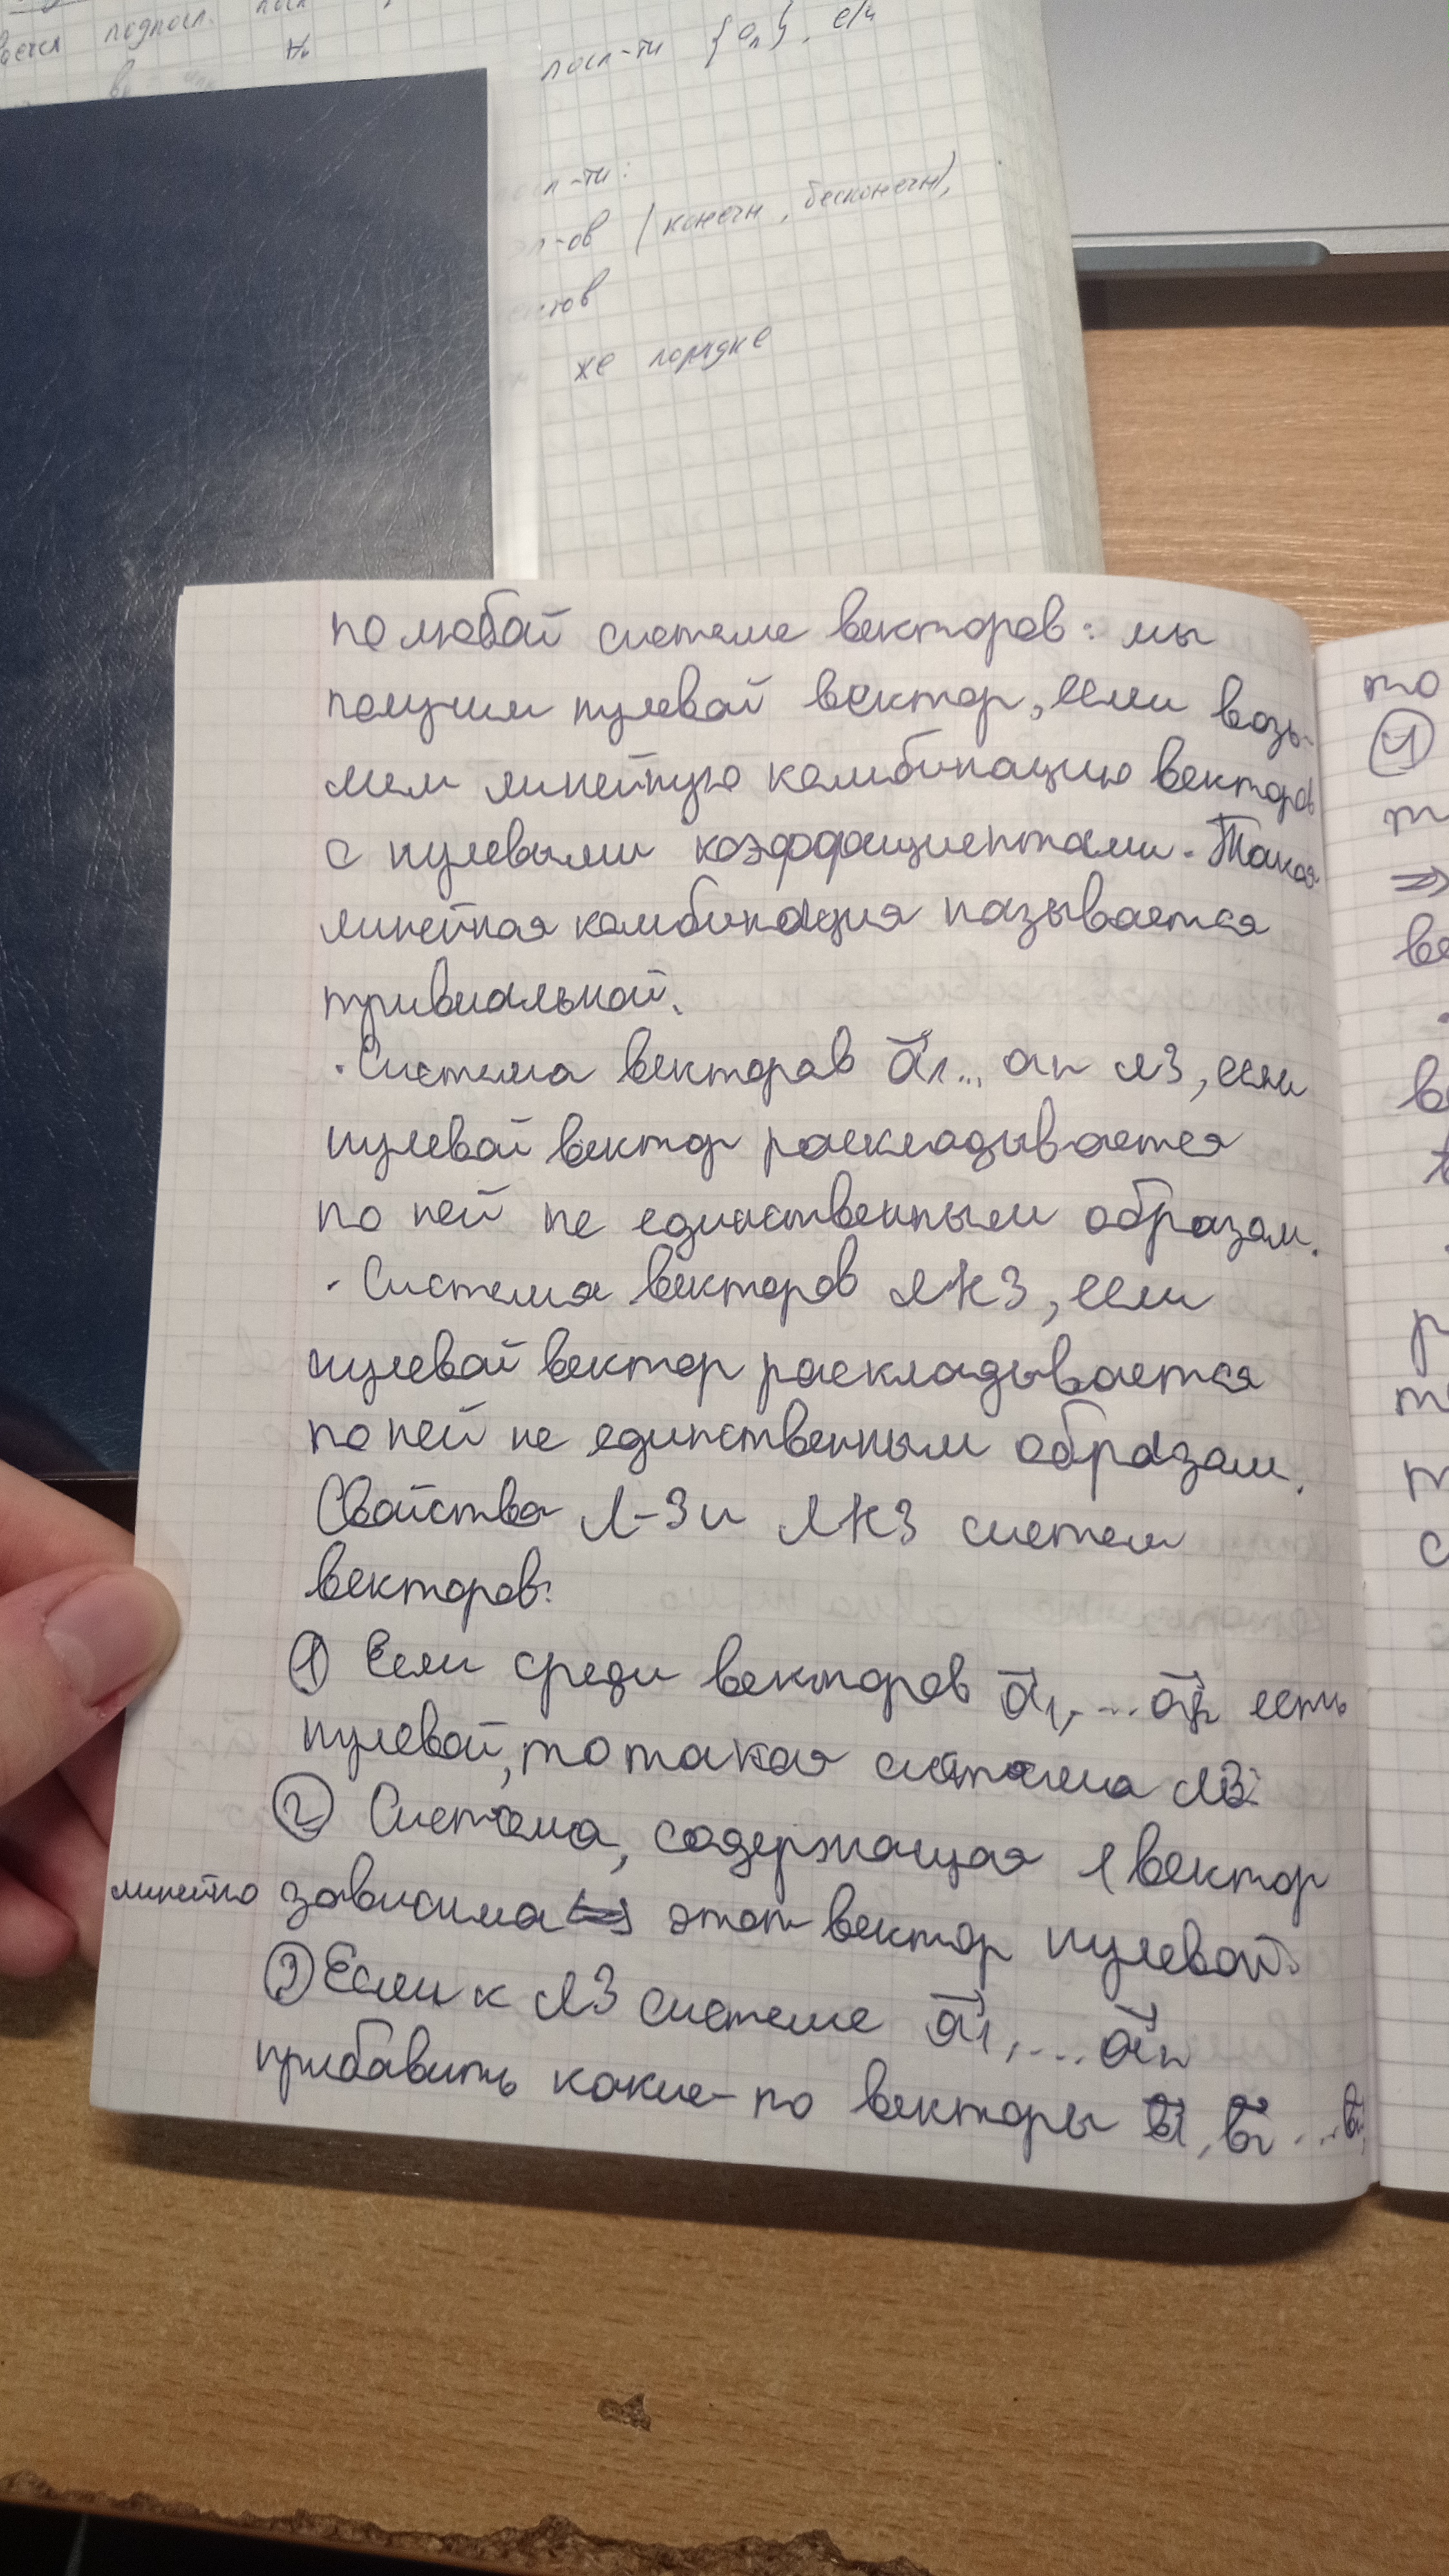 подпосл.
посл-ти {an}.
(конечн, бесконечн),
же порядке
по любой системе векторов: мы
получим нулевой вектор, если возь-
мем линейную комбинацию векторов
с нулевыми коэффициентами. Такая
линейная комбинация называется
тривиальной.
· Система векторов a⃗1... an ЛЗ, если
нулевой вектор раскладывается
по ней не единственным образом.
· Система векторов ЛНЗ, если
нулевой вектор раскладывается
по ней не единственным образом.
Свойства Л-З и ЛНЗ систем
векторов:
① Если среди векторов a⃗1,...a⃗n есть
нулевой, то такая система ЛЗ.
② Система, содержащая 1 вектор
линейно зависима <=> этот вектор нулевой.
③ Если к ЛЗ системе a⃗1,...a⃗n
прибавить какие-то векторы b⃗1, b⃗2 ...
то
④
⇒